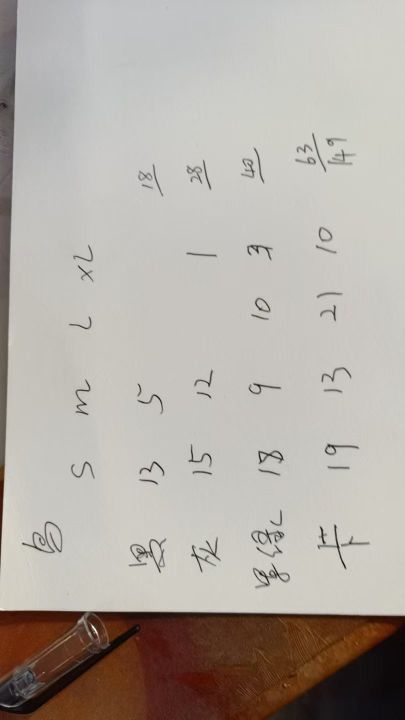 色 S m L XL
黑 13 5 18
灰 15 12 1 28
墨绿 18 9 10 3 40
卡 19 13 21 10 63
149